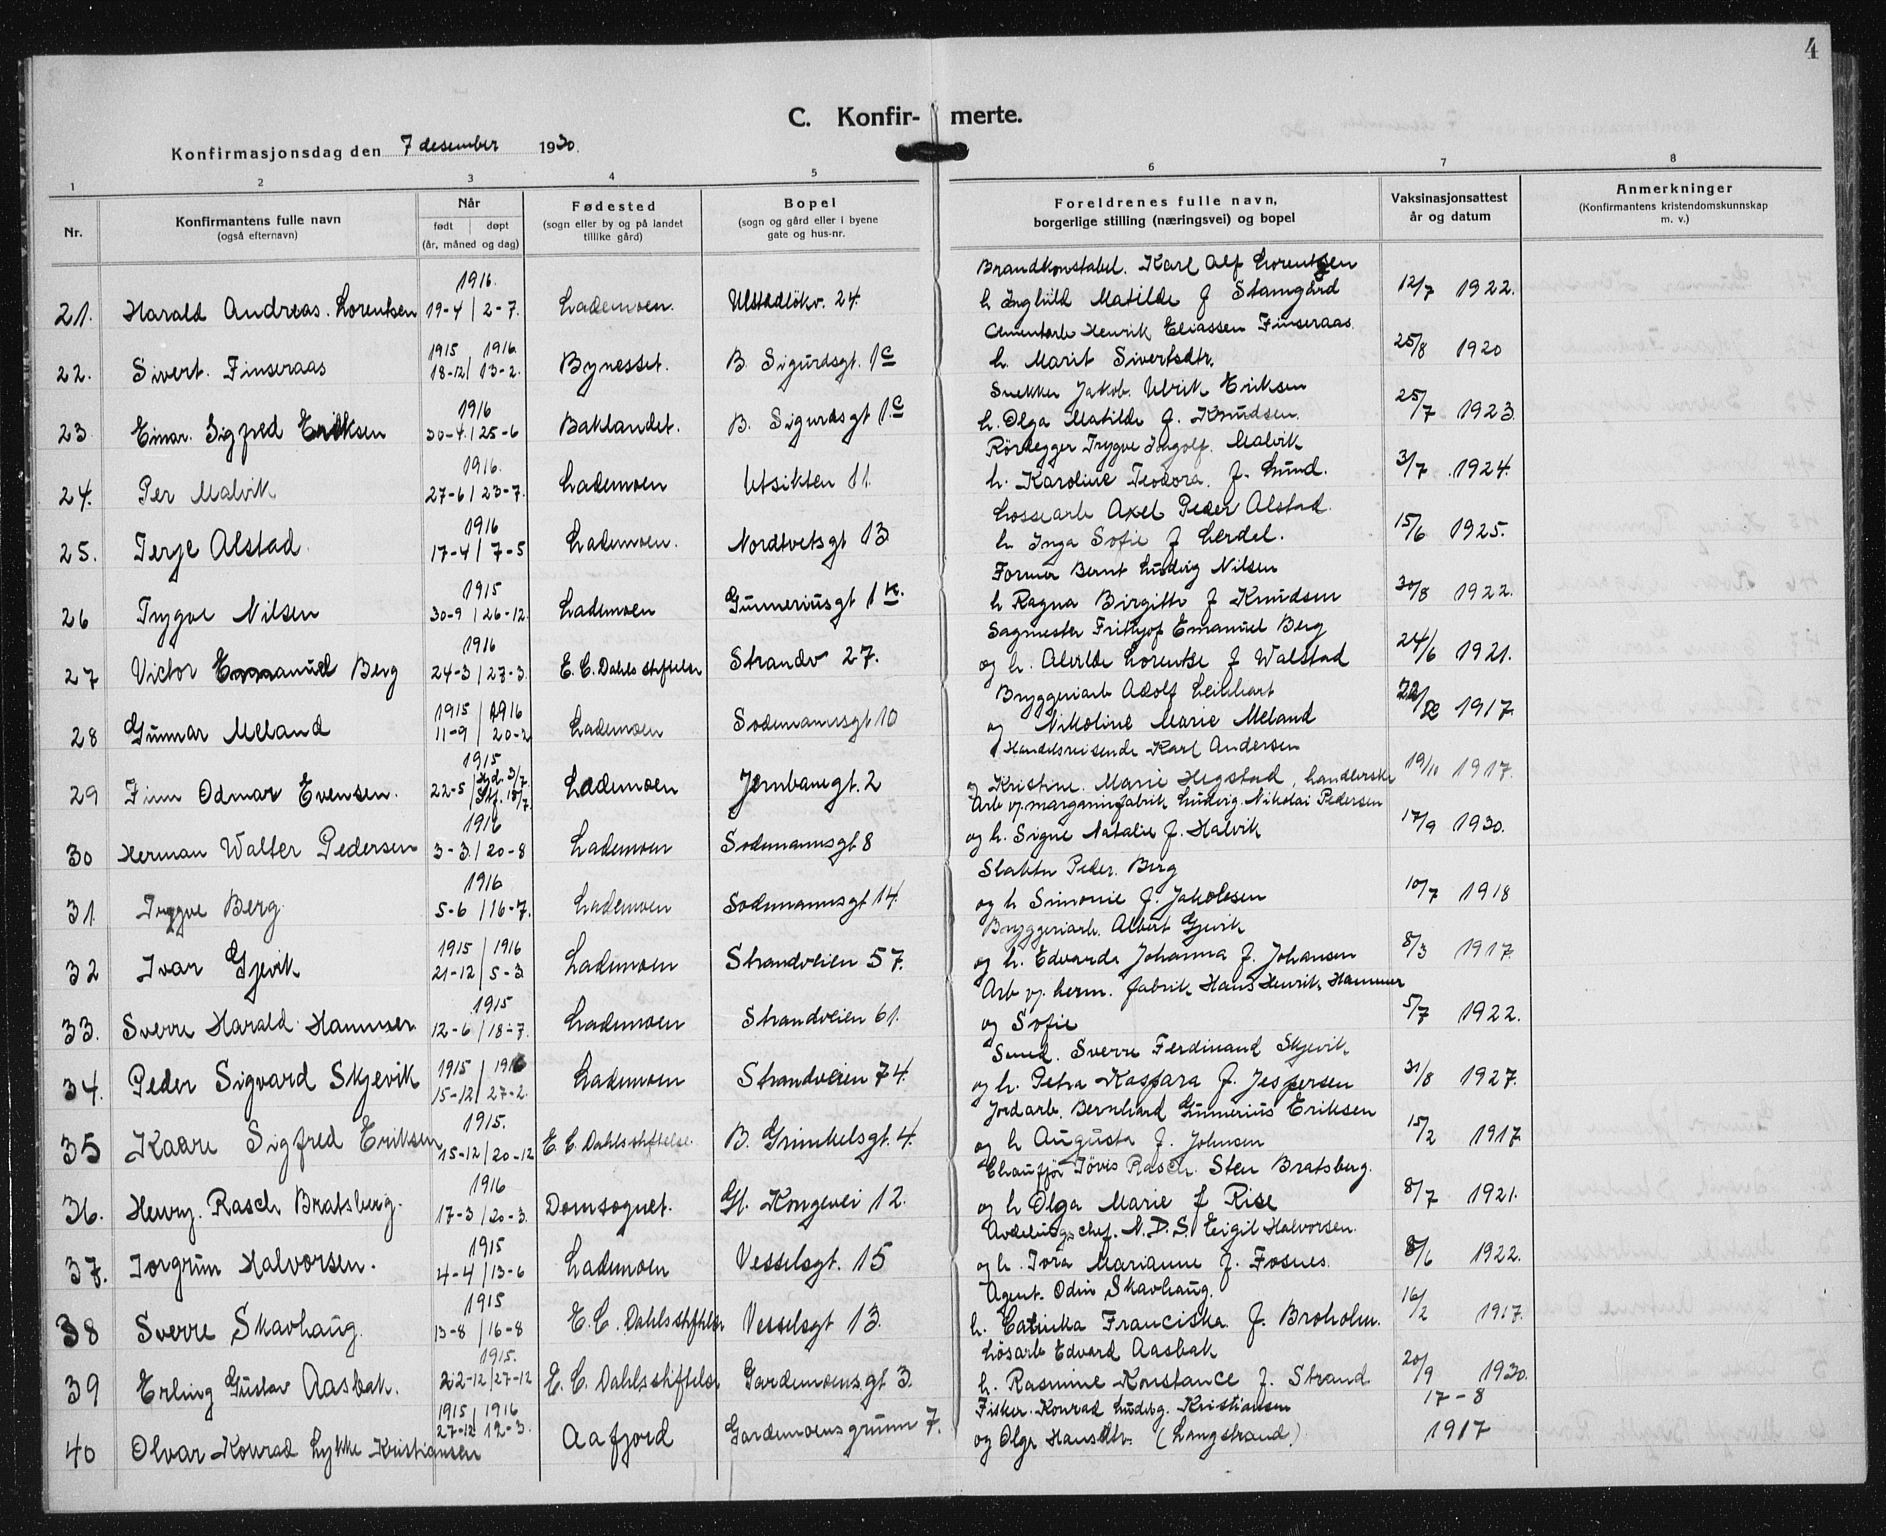 4
C. Konfir- merte.
Konfirmasjonsdag den 7 desember 1930.
1 2 3 4 5 6 7 8
Nr.
Konfirmantens fulle navn
(også efternavn)
Når
født døpt
(år, måned og dag)
Fødested
(sogn eller by og på landet
tillike gård)
Bopel
(sogn og gård eller i byene
gate og hus-nr.
Foreldrenes fulle navn,
borgerlige stilling (næringsvei) og bopel
Vaksinasjonsattest
år og datum
Anmerkninger
(Konfirmantens kristendomskunnskap
m. v.)
1916. Brandkonstabel. Karl Alf Lorentsen
21. Harald Andreas. Lorentsen 19-4 / 2-7. Lademoen. Ulstadløkv. 24. h Inghild Matilde f Stamgård 12/7 1922.
1915 / 1916 Cementarb Henrik Eliassen Finseraas
22. Sivert. Finseraas 18-12 / 13-2. Bynesset. B. Sigurdsgt. 1c h. Marit Sivertsdtr. 25/8 1920
1916 Snekker Jakob Ulrik Eriksen
23 Einar. Sigfred Eriksen 30-4. / 25-6 Baklandet. B. Sigurdsgt 1c h. Olga Matilde f. Knudsen. 25/7 1923.
1916. Rørlegger Trygve Ingolf. Malvik
24. Per Malvik 27-6 / 23-7. Lademoen Utsikten 11. h. Karoline Teodora. f. Lund. 3/7 1924.
1916 Lossearb Axel Peder Alstad.
25. Terje Alstad. 17-4 / 7-5 Lademoen. Nordtvetsgt 13 h Inga Sofie f Lerdel. 15/6 1925.
1915 Former Bernt Ludvig Nilsen
26 Trygve Nilsen 30-9 / 26-12. Lademoen Gunneriusgt 1 k. h Ragna Birgitte f Knudsen 30/8 1922.
1916 Sagmester Frithjof Emanuel Berg
27 Victor Emanuel Berg 24-3 / 27-3. E. C. Dahls stiftelse Strandv 27. og h. Alvilde Lorentse f Walstad 24/6 1921.
1915 / 1916 Bryggeriarb Adolf Leinhart
28 Gunnar Meland 11-9 / 20-2 Lademoen Sodemannsgt 10 og Nikoline Marie Meland 1917.
1915 Handelsreisende Karl Andersen
29 Finn Odmar Evensen. 22-5 / Hd. 3/7 18/7. Lademoen Jernbanegt. 2 og Kristine. Marie Hegstad, handlerske 19/10 1917.
1916 Arb v. margarinfabrik Ludvig. Nikolai Pedersen
30 Herman Walter Pedersen 3-3. / 20-8 Lademoen Sodemannsgt 8 og h. Signe Natalie f. Halvik 17/9 1930.
1916 Slakter Peder. Berg
31 Trygve Berg 5-6 / 16-7. Lademoen Sodemannsgt 14. og h Simonie f. Jakobsen 10/7 1918
1915 / 1916 Bryggeriarb. Albert Gjevik
32 Ivar Gjevik 21-12 / 5-3 Lademoen Strandveien 57. og h. Edvarda Johanna f. Johansen 8/3 1917.
1915 Arb v. herm. fabrik Hans Henrik Hammer
33. Sverre Harald Hammer 12-6 / 18-7. Lademoen Strandveien 61. og Sofie 5/7 1922.
1915 / 1916 Smed. Sverre Ferdinand Skjevik
34. Peder Sigvard Skjevik 15-12 / 27-2. Lademoen Strandveien 74. og h. Petra Kaspara f. Jespersen 31/8 1927.
1915. Jordarb. Bernhard Gunnerius Eriksen
35 Kaare Sigfred Eriksen 15-12 / 20-12 E. C. Dahls stiftelse. B. Grimkelsgt. 4. og h Augusta f. Johnsen 15/2 1917.
1916 Chauffør Jövis Rasch. Sten Bratsberg.
36. Henry. Rasch Bratsberg. 17-3 / 20-3. Domsognet. Gl. Kongevei 12. og h Olga Marie f Rise 8/7 1921.
1915 Avdelingschef. N. D. S. Eigil Halvorsen
37. Torgrim Halvorsen. 4-4 / 13-6 Lademoen Vesselsgt. 15 og h. Tora Marianne f. Fosnes. 8/6 1922.
1915 Agent. Odin Skavhaug.
38 Sverre Skavhaug. 13-8 / 16-8 E. C. Dahls stiftelse Vesselsgt 13. h. Catinka Franciska f. Broholm. 16/2 1917.
1915. Løsarb Edvard Aasbak
39 Erling Gustav Aasbak. 22-12 / 27-12 E. C. Dahls stiftelse Gardemoensgt 3. h. Rasmine Konstance f. Strand 20/9 1930.
1915 / 1916 Fisker. Konrad Ludvig. Kristiansen 17-8
40 Olvar Konrad Lykke Kristiansen 27-12 / 12-3. Aafjord Gardemoensgrunn 7. og Olga Hansdtr. (Langstrand) 1917